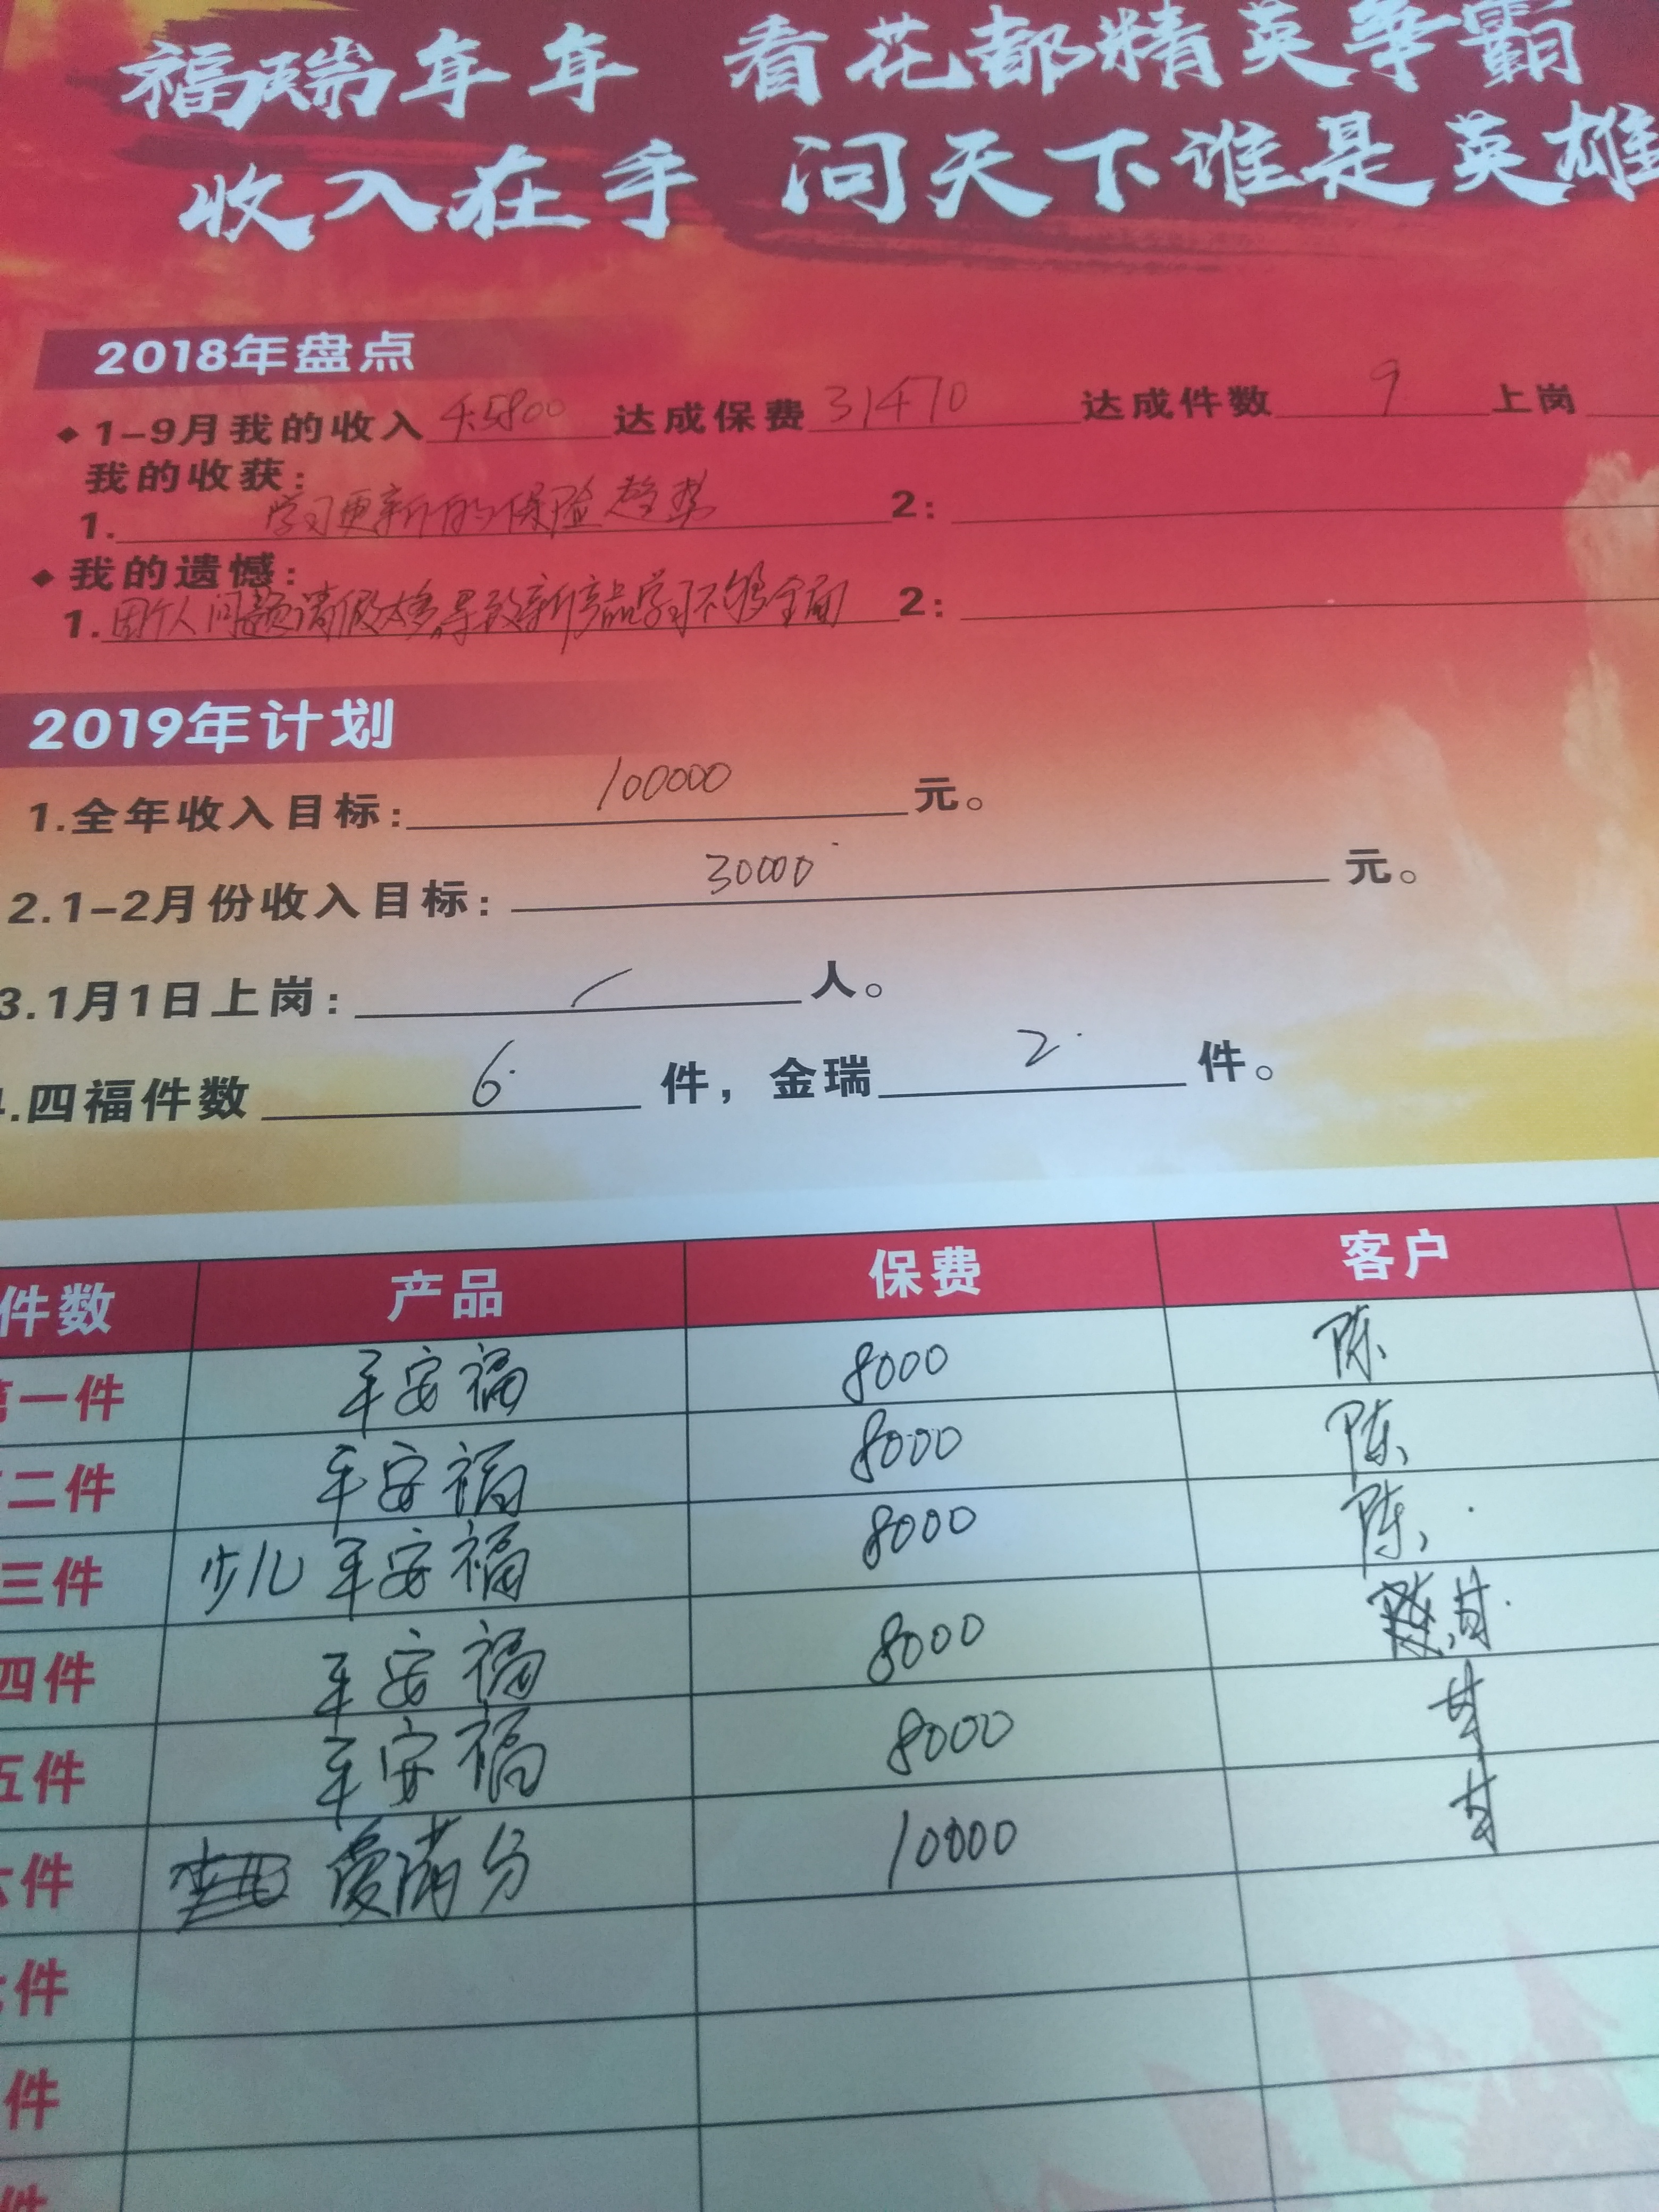 福瑞年年 看花都精英争霸
收入在手 问天下谁是英雄
2018年盘点
◆1-9月我的收入 45800 达成保费 31470 达成件数 9 上岗
我的收获:
1. 学习更新的保险趋势 2:
◆我的遗憾:
1. 因个人问题请假太多,导致新产品学习不够全面 2:
2019年计划
1.全年收入目标: 100000 元。
2.1-2月份收入目标: 30000 元。
3.1月1日上岗: 人。
.四福件数 6 件，金瑞 2 件。
件数 产品 保费 客户
第一件 平安福 8000 陈
二件 平安福 8000 陈
三件 少儿平安福 8000 陈
四件 平安福 8000
五件 平安福 8000
六件 爱满分 10000
件
件
件